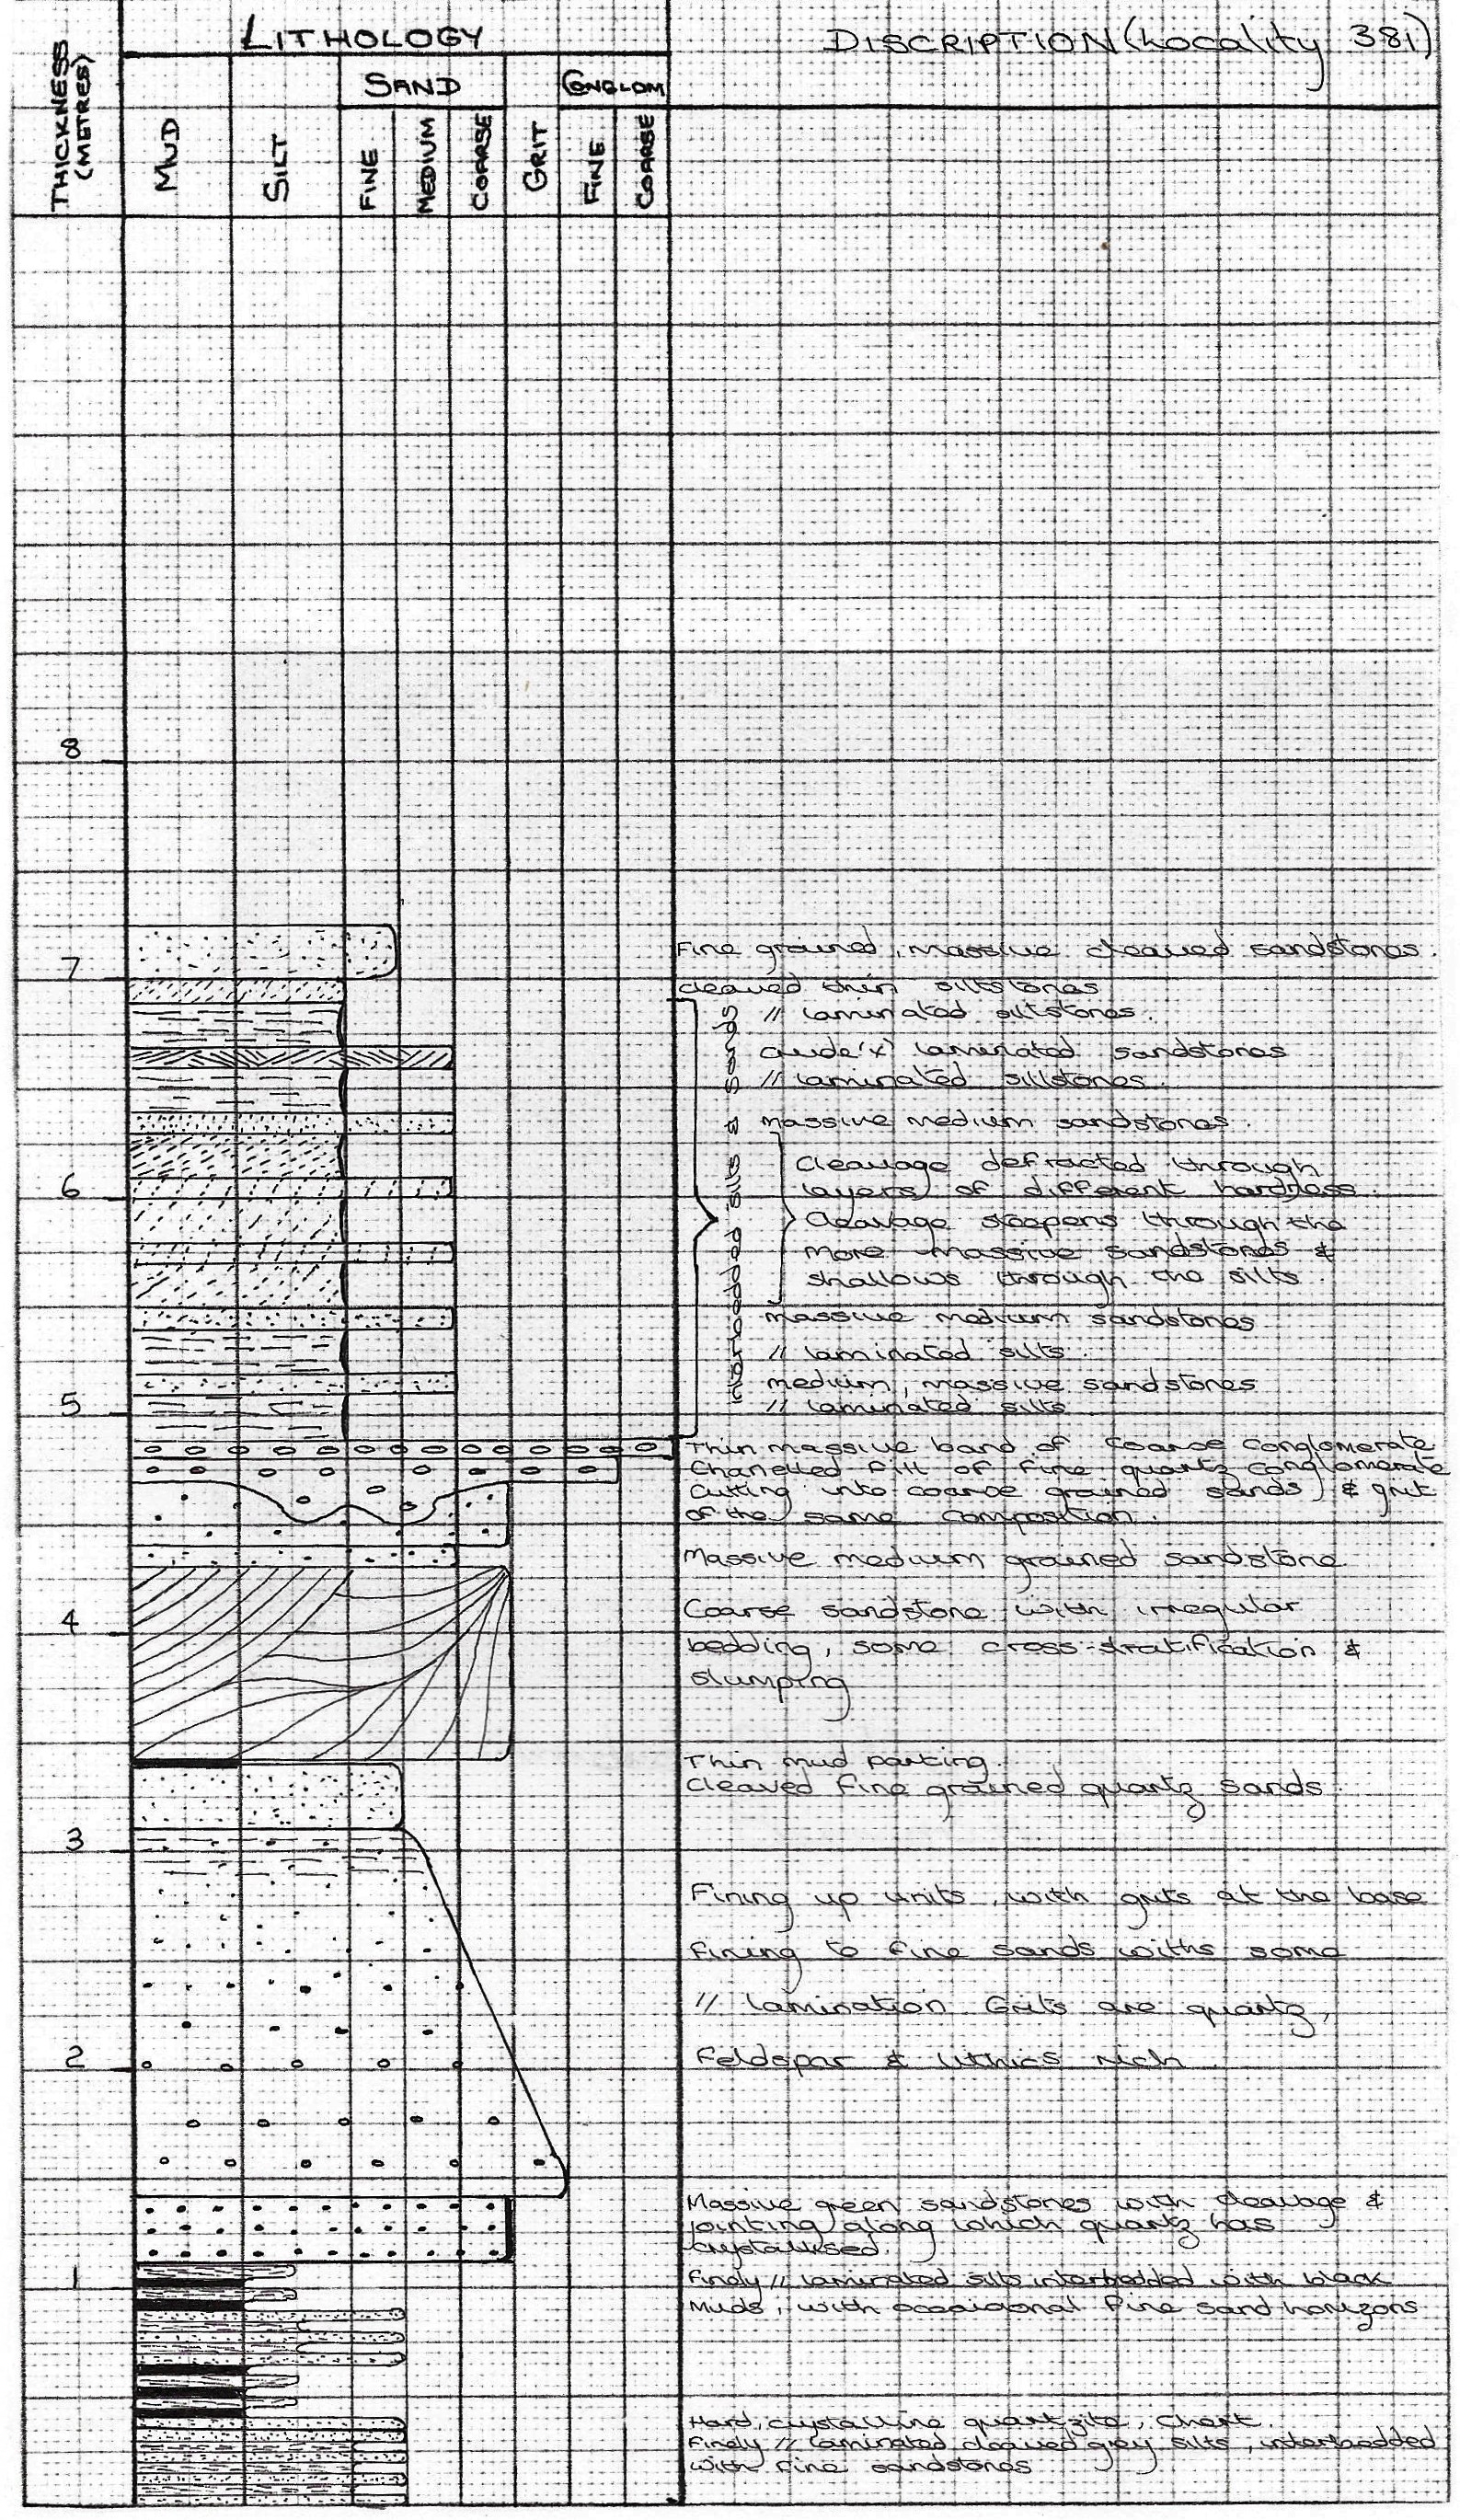 LITHOLOGY
DISCRIPTION (Locality 381)
THICKNESS
(METRES)
SAND
CONGLOM
MUD
SILT
FINE
MEDIUM
COARSE
GRIT
FINE
COARSE
8
Fine grained, massive cleaved sandstones.
7
cleaved thin siltstones
// laminated siltstones.
crude (x) laminated sandstones
// laminated siltstones.
massive medium sandstones.
interbedded silts & sands
Cleavage defracted through
6
layers of different hardness.
Cleavage steepens through the
more massive sandstones &
shallows through the silts.
massive medium sandstones
// laminated silts.
medium, massive sandstones
5
// laminated silts
Thin massive band of coarse conglomerate
Chanelled fill of fine quartz conglomerate
cutting into coarse grained sands & grit
of the same composition.
Massive medium grained sandstone
4
Coarse sandstone with irregular
bedding, some cross-stratification &
slumping
Thin mud parting.
Cleaved fine grained quartz sands.
3
Fining up units, with grits at the base
fining to fine sands withs some
// lamination. Grits are quartz,
2
feldspar & lithics rich.
Massive green sandstones with cleavage &
jointing along which quartz has
crystallised.
1
Finely // laminated silts interbedded with black
muds, with occasional fine sand horizons
Hard, crystalline quartzite, Chert.
Finely // laminated cleaved grey silts, interbedded
with fine sandstones